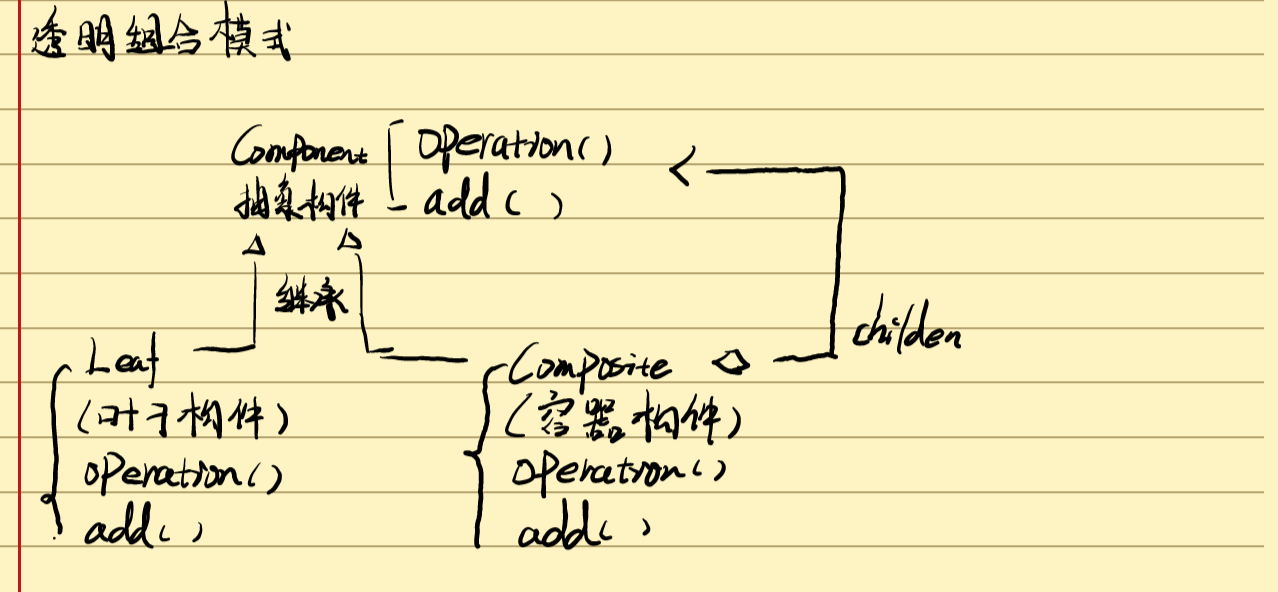 透明组合模式
Component operation()
抽象构件 add()
继承
childen
Leaf
(叶子构件)
operation()
add()
Composite
(容器构件)
operation()
add()